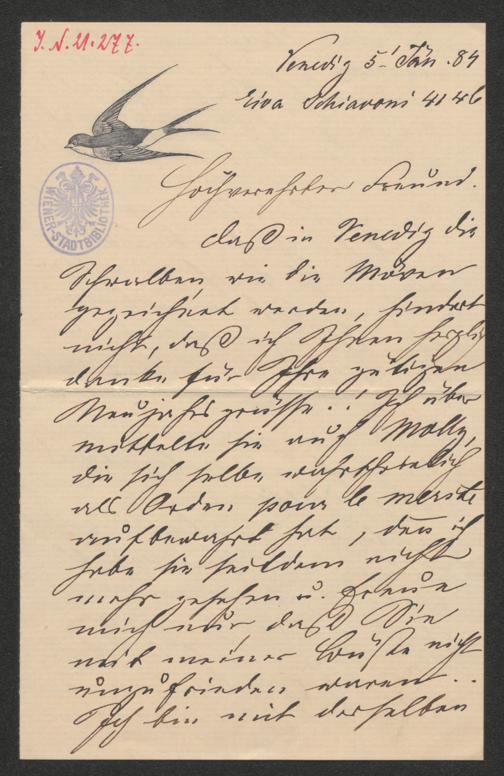 I. N. 21.277.
Venedig 5t Jän. 84
Riva Schiavoni 4146
WIENER-STADTBIBLIOTHEK
Hochverehrter Freund.
Daß in Venedig die
Schwalben, wie die Möven
gezeichnet werden, hindert
nicht, daß ich Ihnen herzlich
danke für Ihre gütigen
Neujahrsgrüsse..! Ich über
mittelte sie auch Molly,
die sich selbe wahrscheinlich
als Orden pour le merite
aufbewahrt hat, den ich
habe sie seitdem nicht
mehr gesehen u. freue
mich nur, daß Sie
mit meiner Büste nicht
unzufrieden waren..
Ich bin mit derselben